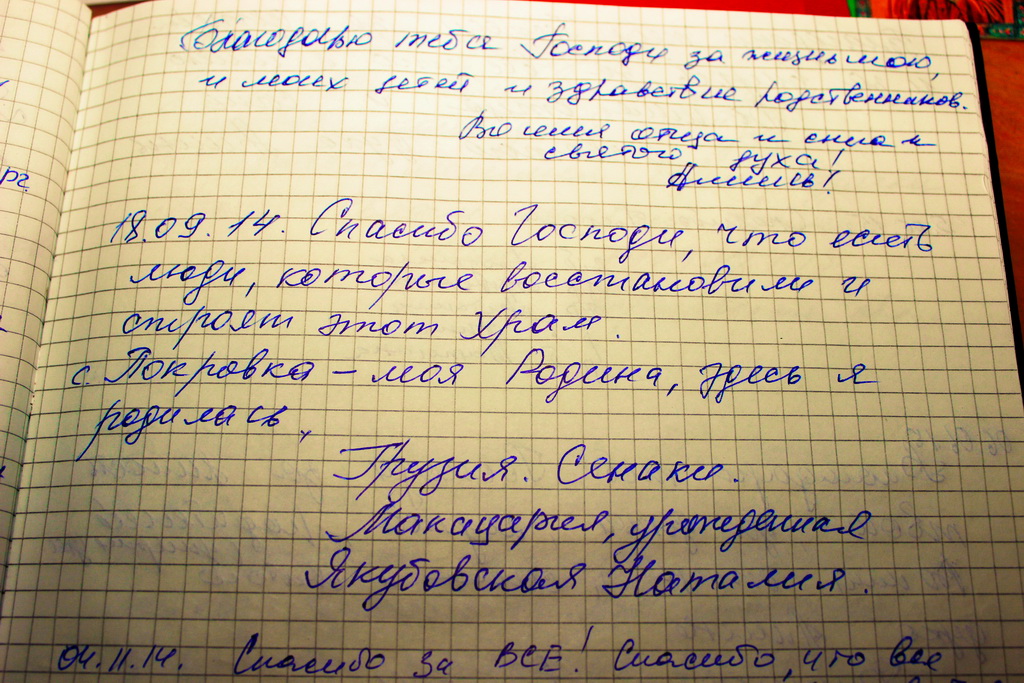 Благодарю тебя Господи за жизнь мою,
и моих детей и здравствие родственников.
Во имя отца и сына и
святого духа!
Аминь!
рг.
18.09.14. Спасибо Господи, что есть
люди, которые восстановили и
строят этот храм.
с. Покровка – моя Родина, здесь я
родилась,
Грузия. Сенаки.
Макацария, урожденная
Якубовская Наталия.
04.11.14. Спасибо за ВСЕ! Спасибо, что все